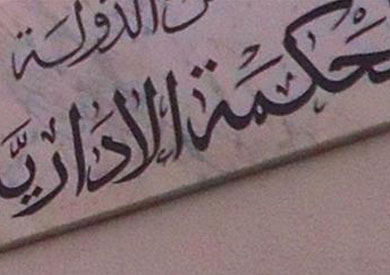 الدولة
حكمة الادارية